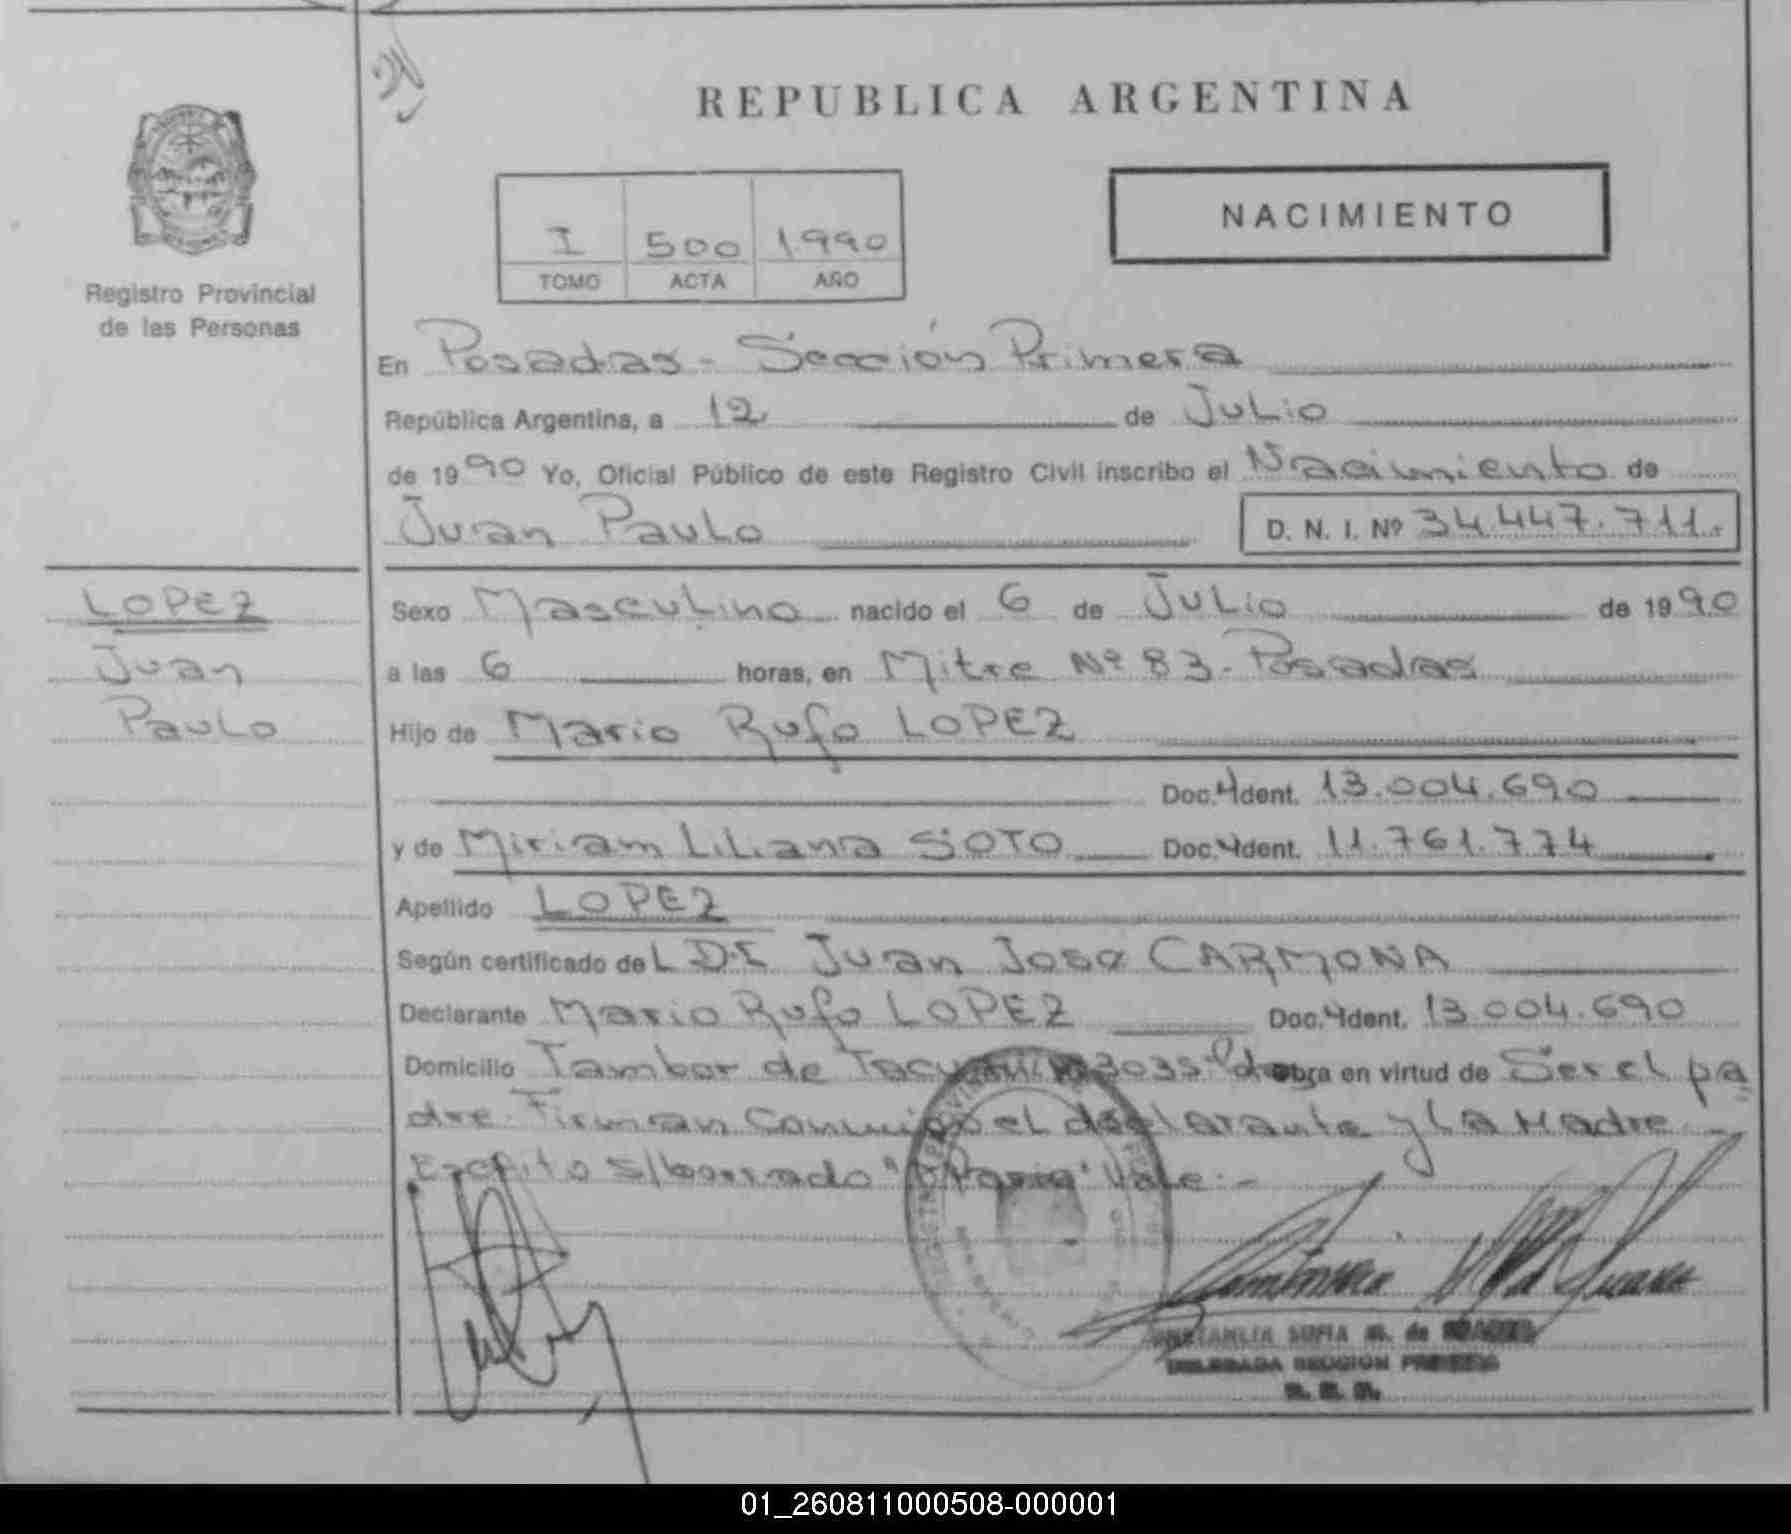 REPUBLICA ARGENTINA
Registro Provincial
de las Personas
I 500 1.990
TOMO ACTA AÑO
NACIMIENTO
En Posadas - Sección Primera
República Argentina, a 12 de Julio
de 1990 Yo, Oficial Público de este Registro Civil inscribo el Nacimiento de
Juan Paulo D. N. I. Nº 34.447.711.-
LOPEZ
Juan
Paulo
Sexo Masculino nacido el 6 de Julio de 1990
a las 6 horas, en Mitre Nº 83 - Posadas
Hijo de Mario Rufo LOPEZ
Doc. Ident. 13.004.690
y de Miriam Liliana SOTO Doc. Ident. 11.761.774
Apellido LOPEZ
Según certificado de L.D.E Juan Jose CARMONA
Declarante Mario Rufo LOPEZ Doc. Ident. 13.004.690
Domicilio Tambor de Tacuarí 3035 obra en virtud de Ser el pa
dre. Firman Conmigo el declarante y La Madre -
Escrito s/borrado Vale.-
SOFIA de
DELEGADA SECCION PRIMERA
01_260811000508-000001